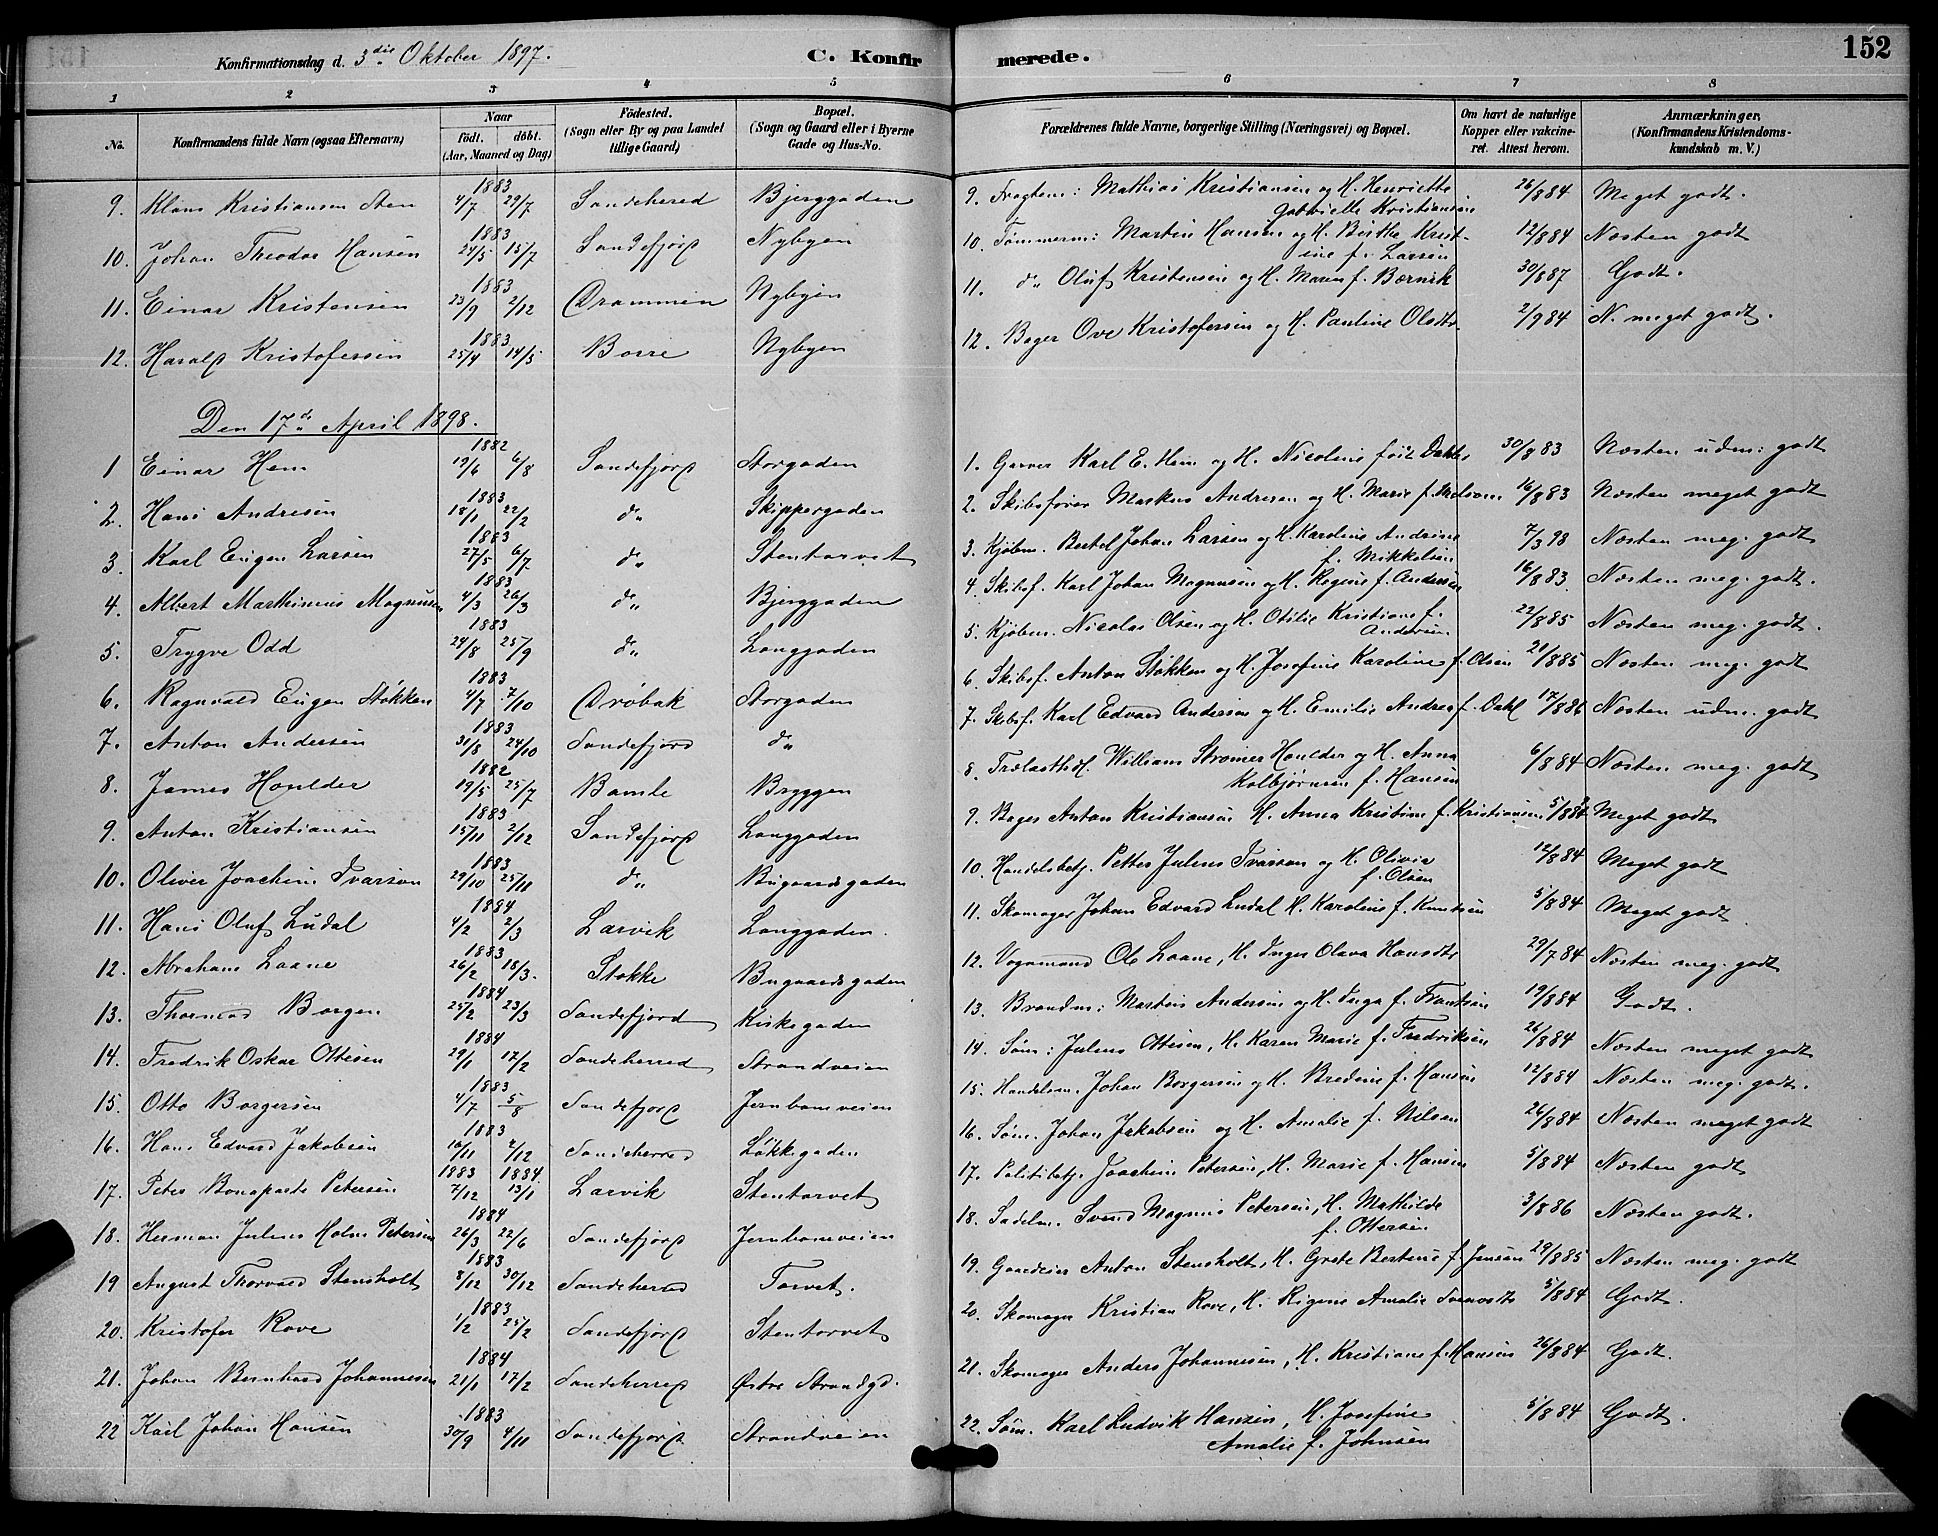 Konfirmationsdag d. 3die Oktober 1897.
C. Konfir
merede.
152
1 2 3 4 5 6 7 8
No. Konfirmandens fulde Navn (ogsaa Efternavn) Naar født. døbt. (Aar, Maaned og Dag) Födested. (Sogn eller By og paa Landet tillige Gaard) Bopæl. (Sogn og Gaard eller i Byerne Gade og Hus-No. Forældrenes fulde Navne, borgerlige Stilling (Næringsvei) og Bopæl. Om havt de naturlige Kopper eller vakcineret. Attest herom. Anmærkninger. (Konfirmandens Kristendomskundskab m. V.)
9. Klaus Kristiansen Sten 1883 4/7 29/7 Sandeherred Bjerggaden 9. Fragtem: Mathias Kristiansen og H. Henriette Gabrielle Kristiansen 26/884 Meget godt.
10. Johan Theodor Hansen 1883 24/5 15/7 Sandefjord Nybyen 10. Tømmerm: Martin Hansen og H. Birthe Kristine f. Larsen 12/884 Næsten godt
11. Einar Kristensen 1883 23/9 2/12 Drammen Nybyen 11. do Oluf Kristensen og H. Maren f. Bærnik 30/887 Godt.
12. Harald Kristofersen 1883 25/4 14/5 Borre Nybyen 12. Bager Ove Kristofersen og H. Pauline Olsdtr 2/984 N. meget godt.
Den 17de April 1898.
1 Einar Hem 1882 19/6 6/8 Sandefjord Storgaden 1. Garver Karl E. Hem og H. Nicoline født Dahl 30/883 Næsten udm: godt
2. Hans Andresen 1883 18/1 22/2 do Skippergaden 2. Skibsfører Markus Andresen og H. Marie f. 16/883 Næsten meget godt
3. Karl Eugen Larsen 1883 27/5 6/7 do Stentorvet 3. Kjøbm. Bertel Johan Larsen og H. Karoline Andrine f. Mikkelsen 7/398 Næsten meg. godt
4. Albert Marthinius Magnusen 1883 4/3 26/3 do Bjerggaden 4. Skibsf. Karl Johan Magnusen og H. Regine f. Andersen 16/883. Næsten meg. godt.
5. Trygve Odd 1883 24/8 25/9 do Langgaden 5. Kjøbm. Nicolai Olsen og H. Otilie Kristiane f. Andersen 22/885 Næsten meg. godt.
6. Ragnvald Eugen Støkken 1883 4/7 7/10 Drøbak Storgaden 6. Skibsf. Anton Støkken og H. Josefine Karoline f. Olsen 21/885 Næsten meg. godt
7. Anton Andersen 1883 31/8 24/10 Sandefjord do 7. Skibsf. Karl Edvard Andersen og H. Emilie Andrea f. Dahl 17/886 Næsten udm. godt
8. James Houlder 1882 19/5 25/7 Bamle Bryggen 8. Trælasthdl. William Strømer Houlder og H. Anna Kolbjørnsen f. Hansen 6/884 Næsten meg. godt
9. Anton Kristiansen 1883 15/11 2/12 Sandefjord Langgaden 9. Bager Anton Kristiansen H. Anna Kristine f. Kristiansen 5/884 Meget godt
10. Oliver Joachim Ivarson 1883 29/10 25/11 do Bugaardsgaden 10. Handelsbetj. Petter Julius Ivarson og H. Olivia f. Olsen 12/884 Meget godt
11. Hans Oluf Ludal 1884 4/2 2/3 Larvik Langgaden. 11. Skomager Johan Edvard Ludal H. Karoline f. Knutsen 5/884 Meget godt
12. Abraham Laane 1883 26/2 18/3. Stokke Bugaardsgaden 12. Vognmand Ole Laane, H. Inger Olava Hansdtr 29/784 Næsten meg. godt
13. Thomas Borgen 1884 25/2 23/3 Sandefjord Kirkegaden 13. Brandm: Martin Andersen og H. Inga f. Frantsen 19/884 Godt.
14. Fredrik Oskar Ottesen 1884 29/1 17/2 Sandeherred Strandveien 14. Søm: Julius Ottesen, H. Karen Marie f. Fredriksen 26/884 Næsten meget godt
15. Otto Borgersen 1883 4/7 5/8 Sandefjord Jernbaneveien 15. Handelsm. Johan Borgersen og H. Bredine f. Hansen 12/884 Næsten meg. godt.
16. Hans Edvard Jakobsen 1883 16/11 4/12 Sandeherred Løkkegaden 16. Søm. Johan Jakobsen og H. Amalie f. Nilsen 26/884 Næsten meget godt
17. Peter Bonaparte Petersen 1883 7/12 1884. 13/1 Larvik Stentorvet 17. Politibetj. Joachim Petersen, H. Marie f. Hansen 5/884 Næsten godt
18. Herman Julius Holm Petersen 1884 26/3 22/6 Sandefjord Jernbaneveien 18. Sadelm. Svend Magnus Petersen, H. Mathilde f. Ottersen 3/886 Næsten godt.
19 August Thorvald Stensholt 1883 8/12 30/12 Sandeherred Torvet. 19. Gaardeier Anton Stensholt, H. Grete Bertine f. Jensen 29/885 Næsten meg. godt
20. Kristofer Rove 1883 1/2 25/2 Sandefjord Stentorvet 20. Skomager Kristian Rove, H. Regine Amalie 5/884 Godt.
21. Johan Bernhard Johannesen 1884 21/1 17/2 Sandeherred Østre Strandgd. 21. Skomager Anders Johannesen, H. Kristiane f. Hansen 26/884 Godt.
22 Karl Johan Hansen 1883 30/9 4/11 Sandefjord Strandveien 22. Søm. Karl Ludvik Hansen, H. Josefine Amalie f. Johnsen 5/884 Godt.